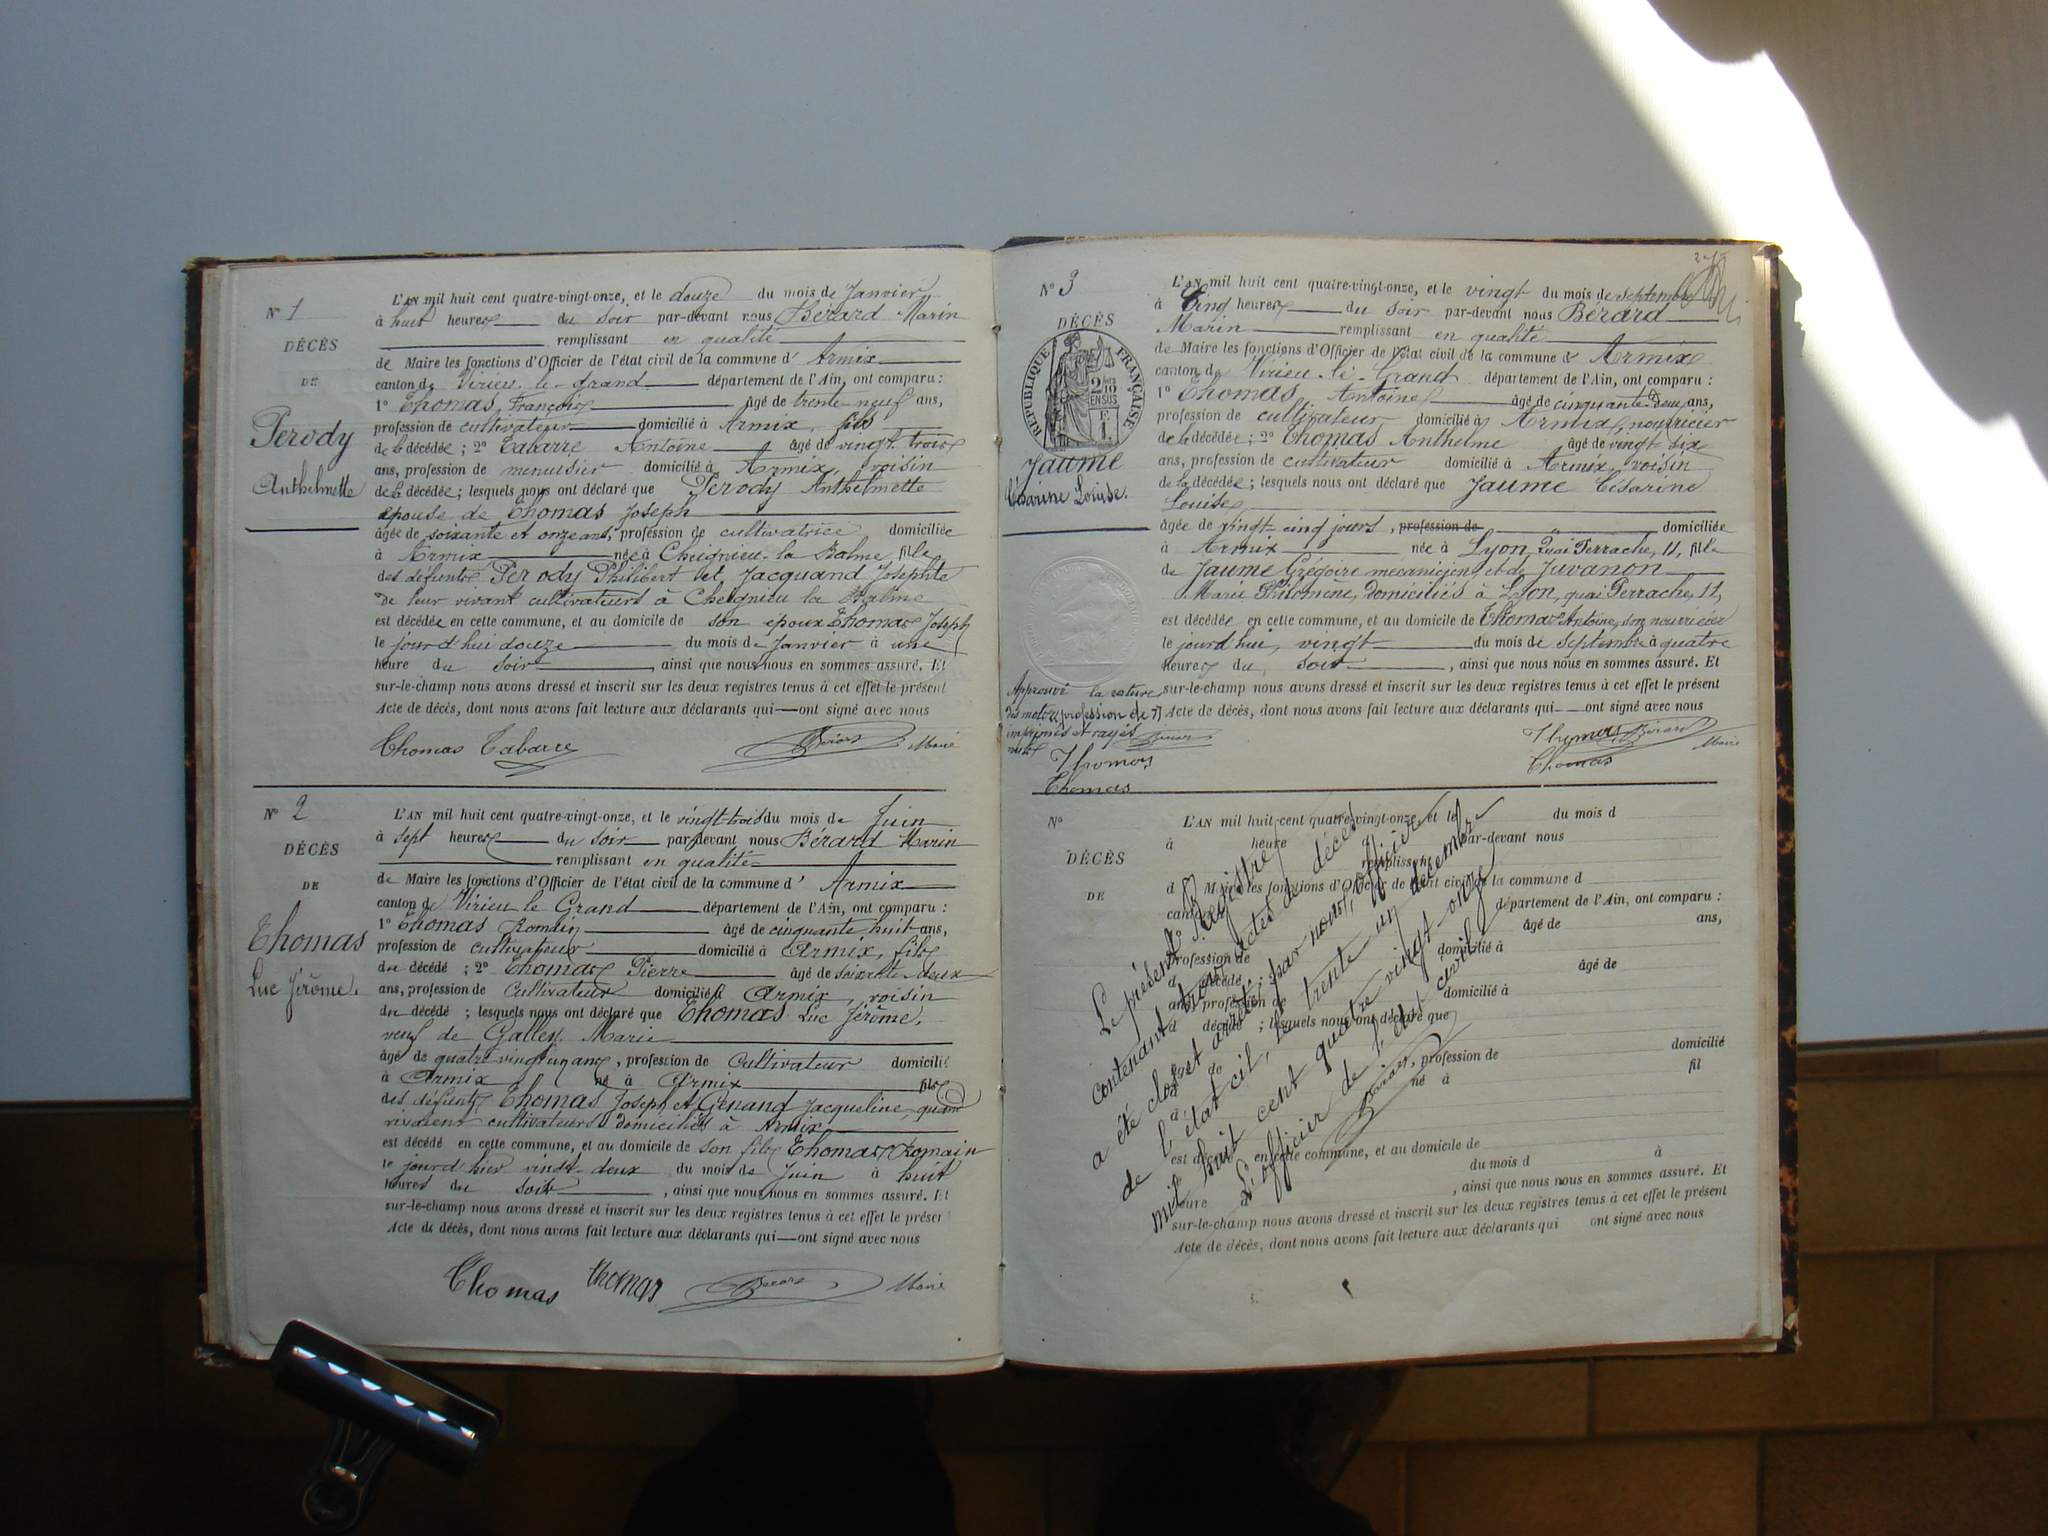 N° 1
DÉCÈS
DE
Perody
Anthelmette
L'AN mil huit cent quatre-vingt-onze, et le douze du mois de Janvier
à huit heures du soir par-devant nous Bérard Marin
remplissant en qualité
de Maire les fonctions d'Officier de l'état civil de la commune d' Armix
canton de Virieu-le-Grand département de l'Ain, ont comparu :
1° Thomas François âgé de trente-neuf ans,
profession de cultivateur domicilié à Armix, fils
de la décédée ; 2° Tabarre Antoine âgé de vingt-trois
ans, profession de menuisier domicilié à Armix, voisin
de la décédée ; lesquels nous ont déclaré que Perody Anthelmette
épouse de Thomas Joseph
âgée de soixante et onze ans, profession de cultivatrice domiciliée
à Armix née à Cheignieu-la Balme, fille
des défunts Perody Philibert et Jacquand Josephte
de leur vivant cultivateurs à Cheignieu la Balme
est décédée en cette commune, et au domicile de son époux Thomas Joseph
le jourd'hui douze du mois de Janvier à une
heure du soir, ainsi que nous nous en sommes assuré. Et
sur-le-champ nous avons dressé et inscrit sur les deux registres tenus à cet effet le présent
Acte de décès, dont nous avons fait lecture aux déclarants qui ont signé avec nous
Thomas Tabarre Bérard Maire
N° 2
DÉCÈS
DE
Thomas
Luc Jérôme.
L'AN mil huit cent quatre-vingt-onze, et le vingt-trois du mois de Juin
à sept heures du soir par devant nous Bérard Marin
remplissant en qualité
de Maire les fonctions d'Officier de l'état civil de la commune d' Armix
canton de Virieu le Grand département de l'Ain, ont comparu :
1° Thomas Romain âgé de cinquante huit ans,
profession de cultivateur domicilié à Armix, fils
du décédé ; 2° Thomas Pierre âgé de soixante-deux
ans, profession de Cultivateur domicilié à Armix, voisin
du décédé ; lesquels nous ont déclaré que Thomas Luc Jérôme,
veuf de Gallen Marie
âgé de quatre-vingt un ans, profession de Cultivateur domicilié
à Armix né à Armix fils
des défunts Thomas Joseph et Genand Jacqueline, quand
vivaient cultivateurs domiciliés à Armix
est décédé en cette commune, et au domicile de son fils Thomas Romain
le jourd'hier vingt-deux du mois de Juin à huit
heures du soir, ainsi que nous nous en sommes assuré. Et
sur-le-champ nous avons dressé et inscrit sur les deux registres tenus à cet effet le présent
Acte de décès, dont nous avons fait lecture aux déclarants qui ont signé avec nous
Thomas thomas Bérard Maire
N° 3
DÉCÈS
RÉPUBLIQUE FRANÇAISE
2 10
EN SUS
F.
1.
Jaume
Césarine Louise.
L'AN mil huit cent quatre-vingt-onze, et le vingt du mois de septembre
à Cinq heures du soir par-devant nous Bérard
Marin remplissant en qualité
de Maire les fonctions d'Officier de l'état civil de la commune d' Armix
canton de Virieu-le-Grand département de l'Ain, ont comparu :
1° Thomas Antoine âgé de cinquante-deux ans,
profession de cultivateur domicilié à Armix, nourricier
de la décédée ; 2° Thomas Anthelme âgé de vingt-six
ans, profession de cultivateur domicilié à Armix, voisin
de la décédée ; lesquels nous ont déclaré que Jaume Césarine
Louise
âgée de vingt-cinq jours, profession de domiciliée
à Armix née à Lyon, Quai Perrache, 11, fille
de Jaume Grégoire mécanicien, et de Juvanon
Marie Philomène, domiciliés à Lyon, quai Perrache, 11,
est décédée en cette commune, et au domicile de Thomas Antoine, son nourricier
le jourd'hui, vingt du mois de septembre à quatre
heures du soir, ainsi que nous nous en sommes assuré. Et
sur-le-champ nous avons dressé et inscrit sur les deux registres tenus à cet effet le présent
Acte de décès, dont nous avons fait lecture aux déclarants qui ont signé avec nous
Thomas Bérard Maire
Thomas
Approuvé la rature
des mots "profession de"
imprimés et rayés
nuls Bérard
Thomas
Thomas
N°
DÉCÈS
DE
L'AN mil huit cent quatre-vingt-onze, et le du mois d
à heure par-devant nous
remplissant
d Maire les fonctions d'Officier de l'état civil de la commune d
canton département de l'Ain, ont comparu :
1° âgé de ans,
profession de domicilié à
d décédé ; âgé de
ans, profession de domicilié à
d décédé ; lesquels nous ont déclaré que
âgé de , profession de domicilié
à né à fil
de
est décédé en cette commune, et au domicile de
le du mois d à
heure d , ainsi que nous nous en sommes assuré. Et
sur-le-champ nous avons dressé et inscrit sur les deux registres tenus à cet effet le présent
Acte de décès, dont nous avons fait lecture aux déclarants qui ont signé avec nous
Le présent Registre
contenant trois actes de décès
a été clos et arrêté par nous, officier
de l'état cil, le trente un décembre
mil huit cent quatre vingt-onze
L'officier de l'état civil,
Bérard